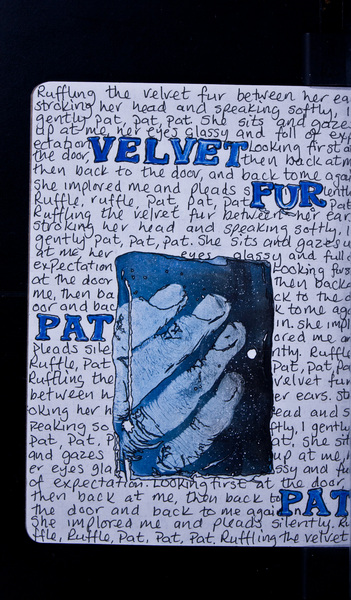 Ruffling the velvet fur between her ea
stroking her head and speaking softly, I
gently pat, pat, pat. She sits and gazes
up at me, her eyes glassy and full of exp
ectation. Looking first a
the door, VELVET then back at m
then back to the door, and back to me agai
she implored me and pleads s lently
Ruffle, ruffle, Pat, pat, pat FUR
Ruffling the velvet fur between her ear
stroking her head and speaking softly. I
gently pat, Pat, Pat. She sits and gazes u
at me, her eyes glassy and full o
expectation Looking firs
at the door then back
me, then ba ck to the d
oor and bac k to me again
PAT n. she impl
ored me an
Pleads sile ntly. Ruffle
Ruffle, Pat Pat, Pat, Pa
Ruffling the velvet fur
between h er ears. Str
oking her h ead and s
peaking so ftly, I gently
Pat, Pat, P at, She sit
and gazes up at me, h
er eyes gla ssy and fu
of expectation. Looking first at the door
then back at me, then back to
the door and back to me again PAT
She implored me and pleads silently. Ru
ffle, Ruffle, Pat, Pat, Pat. Ruffling the velvet